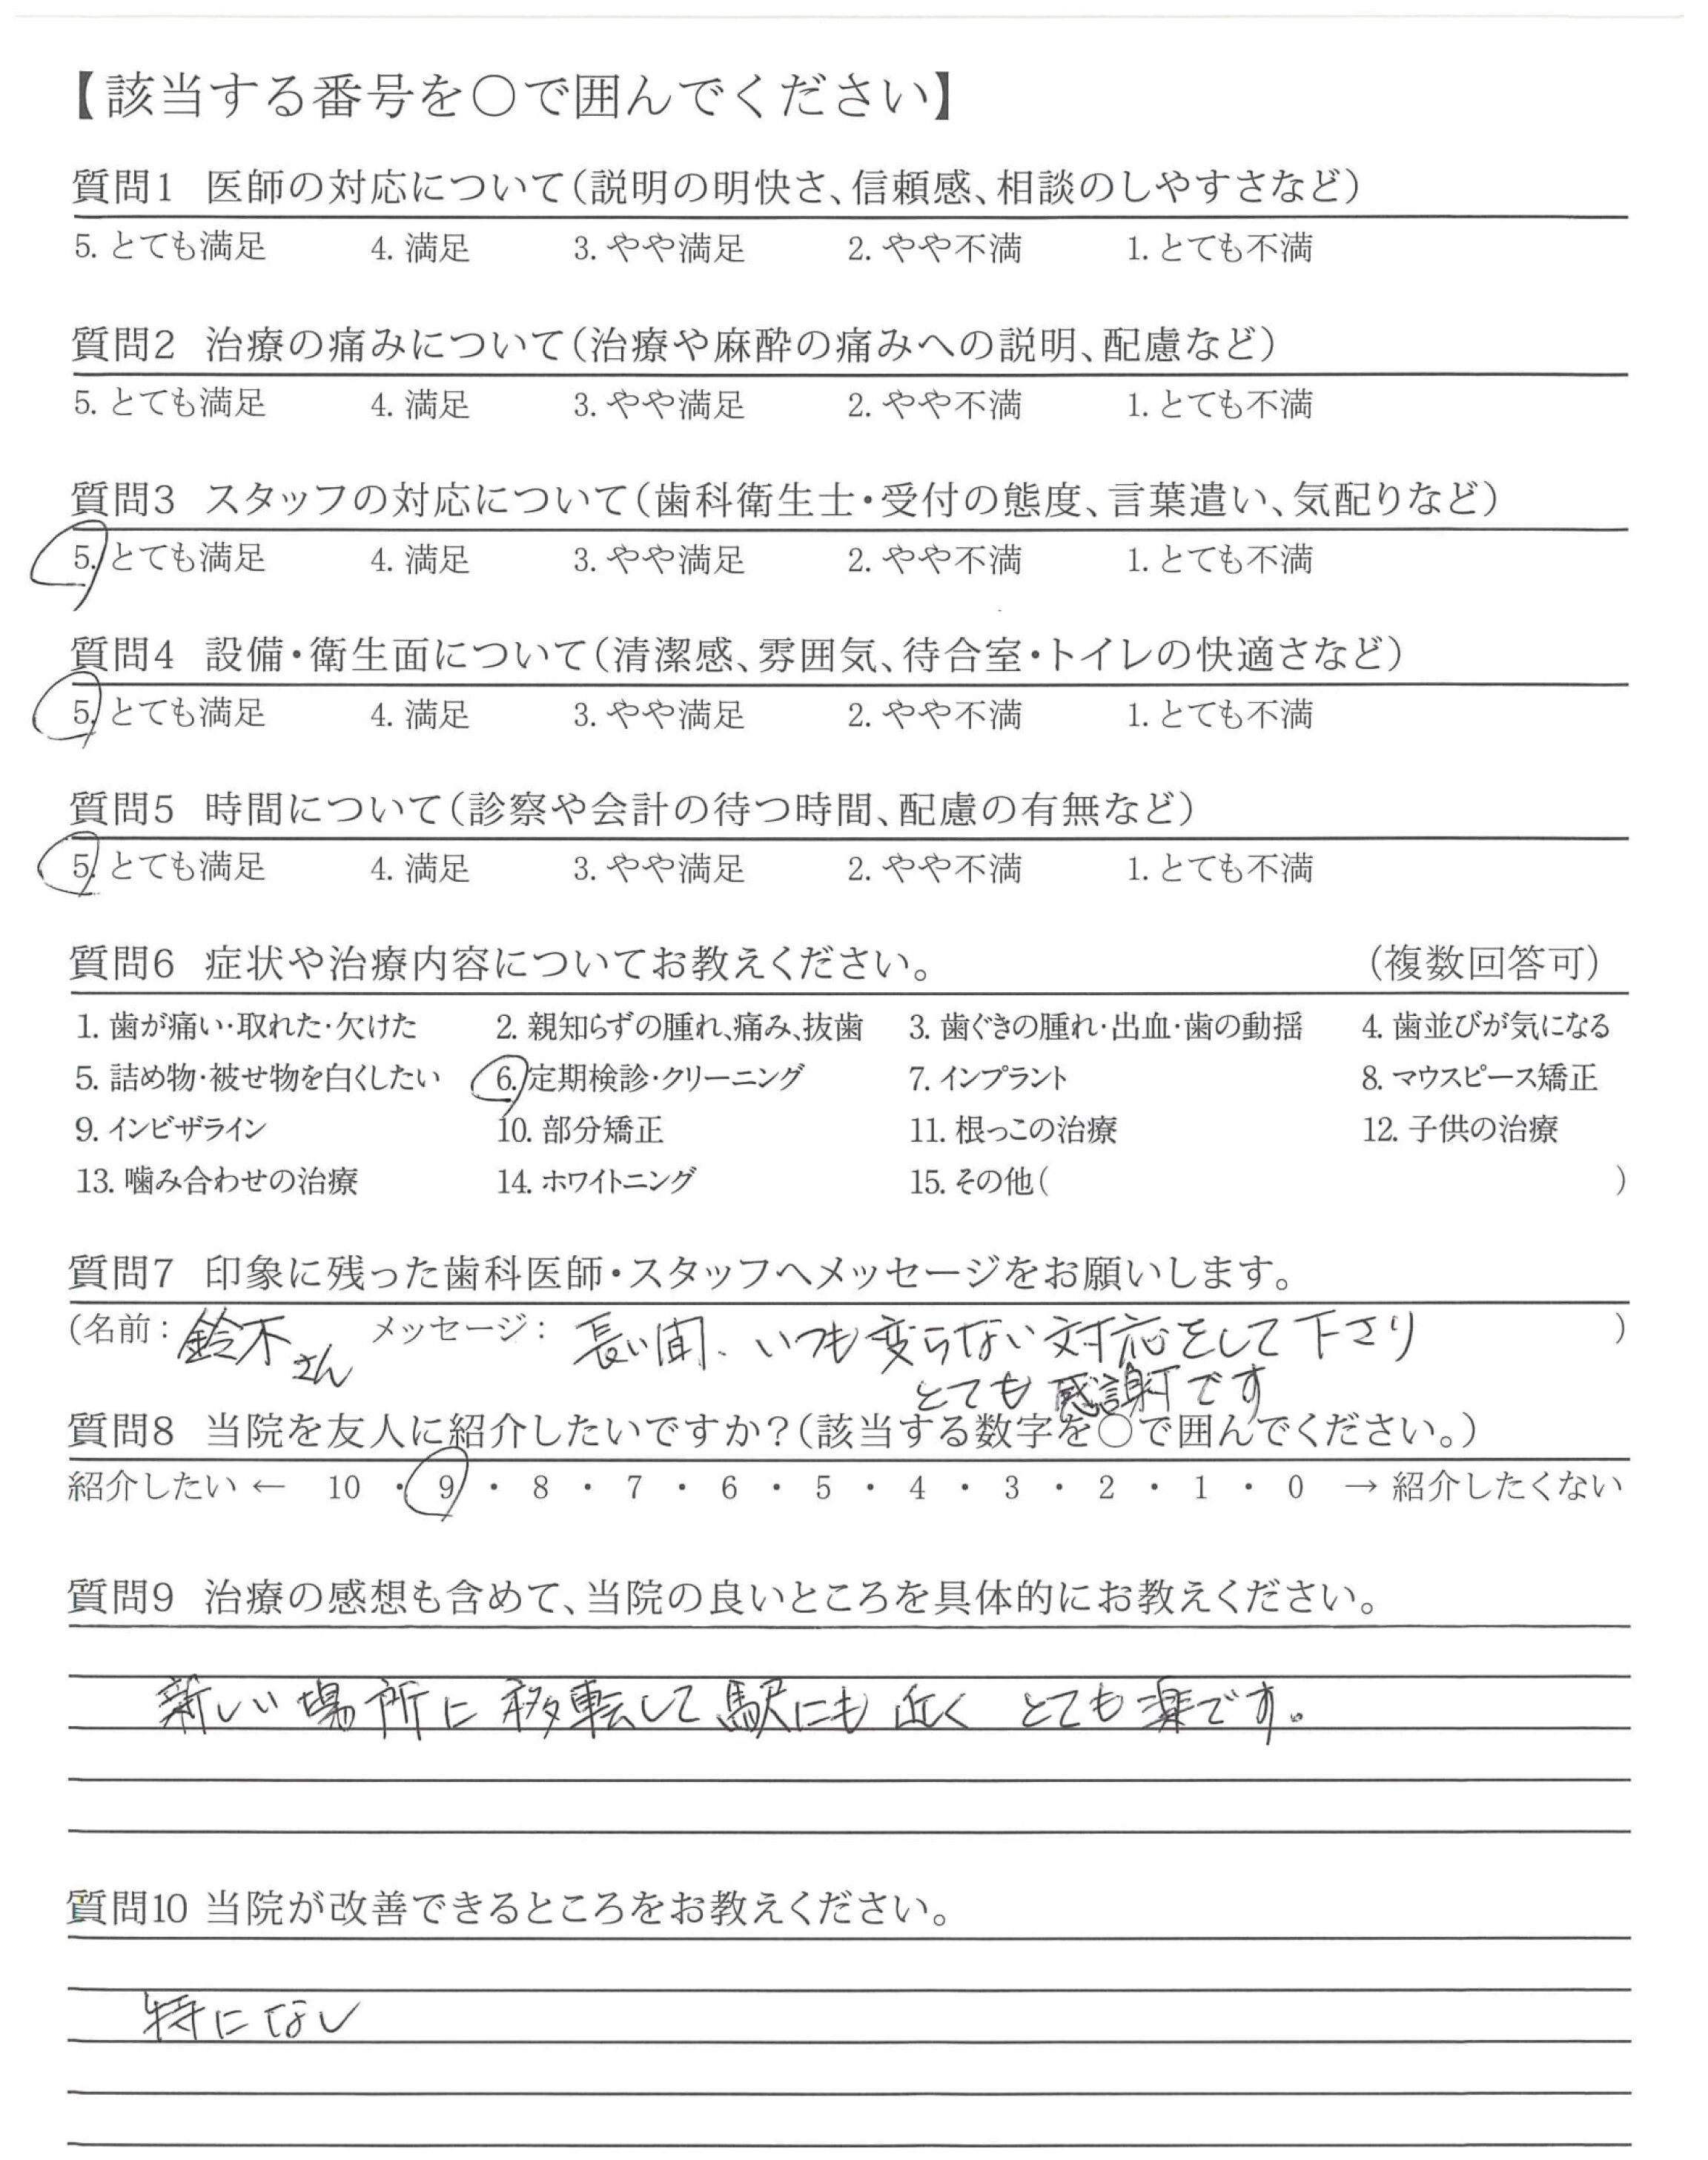 【該当する番号を○で囲んでください】
質問1 医師の対応について(説明の明快さ、信頼感、相談のしやすさなど)
5. とても満足 4. 満足 3. やや満足 2. やや不満 1. とても不満
質問2 治療の痛みについて(治療や麻酔の痛みへの説明、配慮など)
5. とても満足 4. 満足 3. やや満足 2. やや不満 1. とても不満
質問3 スタッフの対応について(歯科衛生士・受付の態度、言葉遣い、気配りなど)
5. とても満足 4. 満足 3. やや満足 2. やや不満 1. とても不満
質問4 設備・衛生面について(清潔感、雰囲気、待合室・トイレの快適さなど)
5. とても満足 4. 満足 3. やや満足 2. やや不満 1. とても不満
質問5 時間について(診察や会計の待つ時間、配慮の有無など)
5. とても満足 4. 満足 3. やや満足 2. やや不満 1. とても不満
質問6 症状や治療内容についてお教えください。 (複数回答可)
1. 歯が痛い・取れた・欠けた 2. 親知らずの腫れ、痛み、抜歯 3. 歯ぐきの腫れ・出血・歯の動揺 4. 歯並びが気になる
5. 詰め物・被せ物を白くしたい 6. 定期検診・クリーニング 7. インプラント 8. マウスピース矯正
9. インビザライン 10. 部分矯正 11. 根っこの治療 12. 子供の治療
13. 噛み合わせの治療 14. ホワイトニング 15. その他( )
質問7 印象に残った歯科医師・スタッフへメッセージをお願いします。
(名前: 鈴木さん メッセージ: 長い間、いつも変らない対応をして下さり )
とても感謝です
質問8 当院を友人に紹介したいですか?(該当する数字を○で囲んでください。)
紹介したい ← 10 ・ 9 ・ 8 ・ 7 ・ 6 ・ 5 ・ 4 ・ 3 ・ 2 ・ 1 ・ 0 → 紹介したくない
質問9 治療の感想も含めて、当院の良いところを具体的にお教えください。
新しい場所に移転して駅にも近く とても楽です。
質問10 当院が改善できるところをお教えください。
特になし